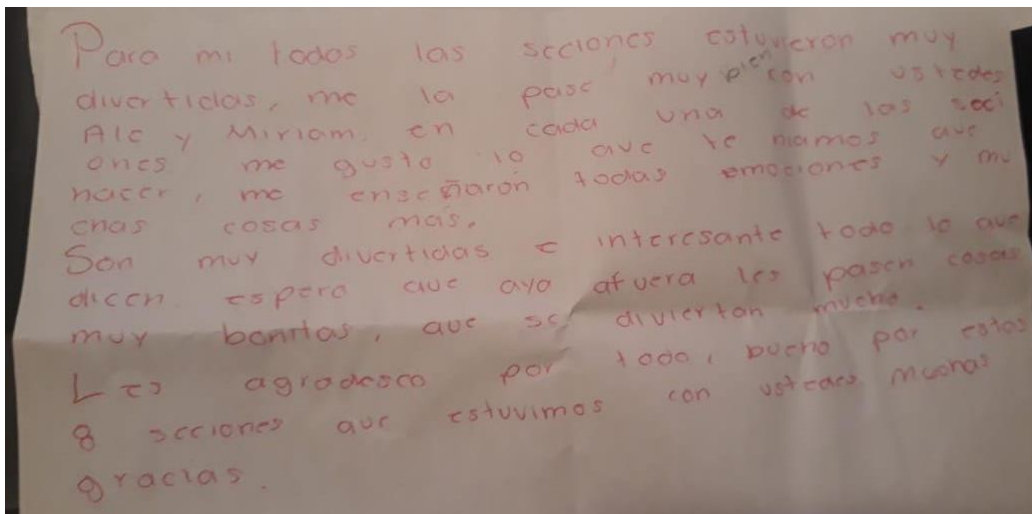 Para mi todos las secciones estuvieron muy
divertidas, me la pase muy bien con ustedes
Ale y Miriam. en cada una de las secci
ones me gusto lo que teniamos que
hacer, me enseñaron todas emociones y mu
chas cosas más.
Son muy divertidas e interesante todo lo que
dicen. espero que aya afuera les pasen cosas
muy bonitas, que se diviertan mucho.
Les agradesco por todo, bueno por estas
8 secciones que estuvimos con ustedes muchas
gracias.